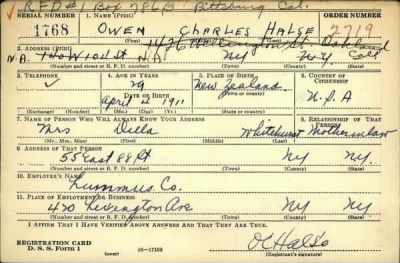 ✓ R.F.D #1 Box 786B Pittsburg Cal.
SERIAL NUMBER 1. NAME (Print) ORDER NUMBER
1768 OWEN CHARLES HALSE 2719
(First) (Middle) (Last)
1426 Wellington St. Oakland
2. ADDRESS (Print) Cal
N.A. 140 W 104 St N.A. NY N.Y
(Number and street or R. F. D. number) (Town) (County) (State)
3. TELEPHONE 4. AGE IN YEARS 5. PLACE OF BIRTH 6. COUNTRY OF CITIZENSHIP
29 New Zealand
DATE OF BIRTH (Town or county)
April 4 1911 N.Z.A
(Exchange) (Number) (Mo.) (Day) (Yr.) (State or country)
7. NAME OF PERSON WHO WILL ALWAYS KNOW YOUR ADDRESS 8. RELATIONSHIP OF THAT PERSON
Mrs Della Whitehurst Motherinlaw
(Mr., Mrs., Miss) (First) (Middle) (Last)
9. ADDRESS OF THAT PERSON
55 East 88 St NY NY
(Number and street or R. F. D. number) (Town) (County) (State)
10. EMPLOYER'S NAME
Lummus Co.
11. PLACE OF EMPLOYMENT OR BUSINESS
420 Lexington Ave NY NY
(Number and street or R. F. D. number) (Town) (County) (State)
I AFFIRM THAT I HAVE VERIFIED ABOVE ANSWERS AND THAT THEY ARE TRUE.
REGISTRATION CARD
D. S. S. Form 1 16—17105 O C Halse
(Registrant's signature)